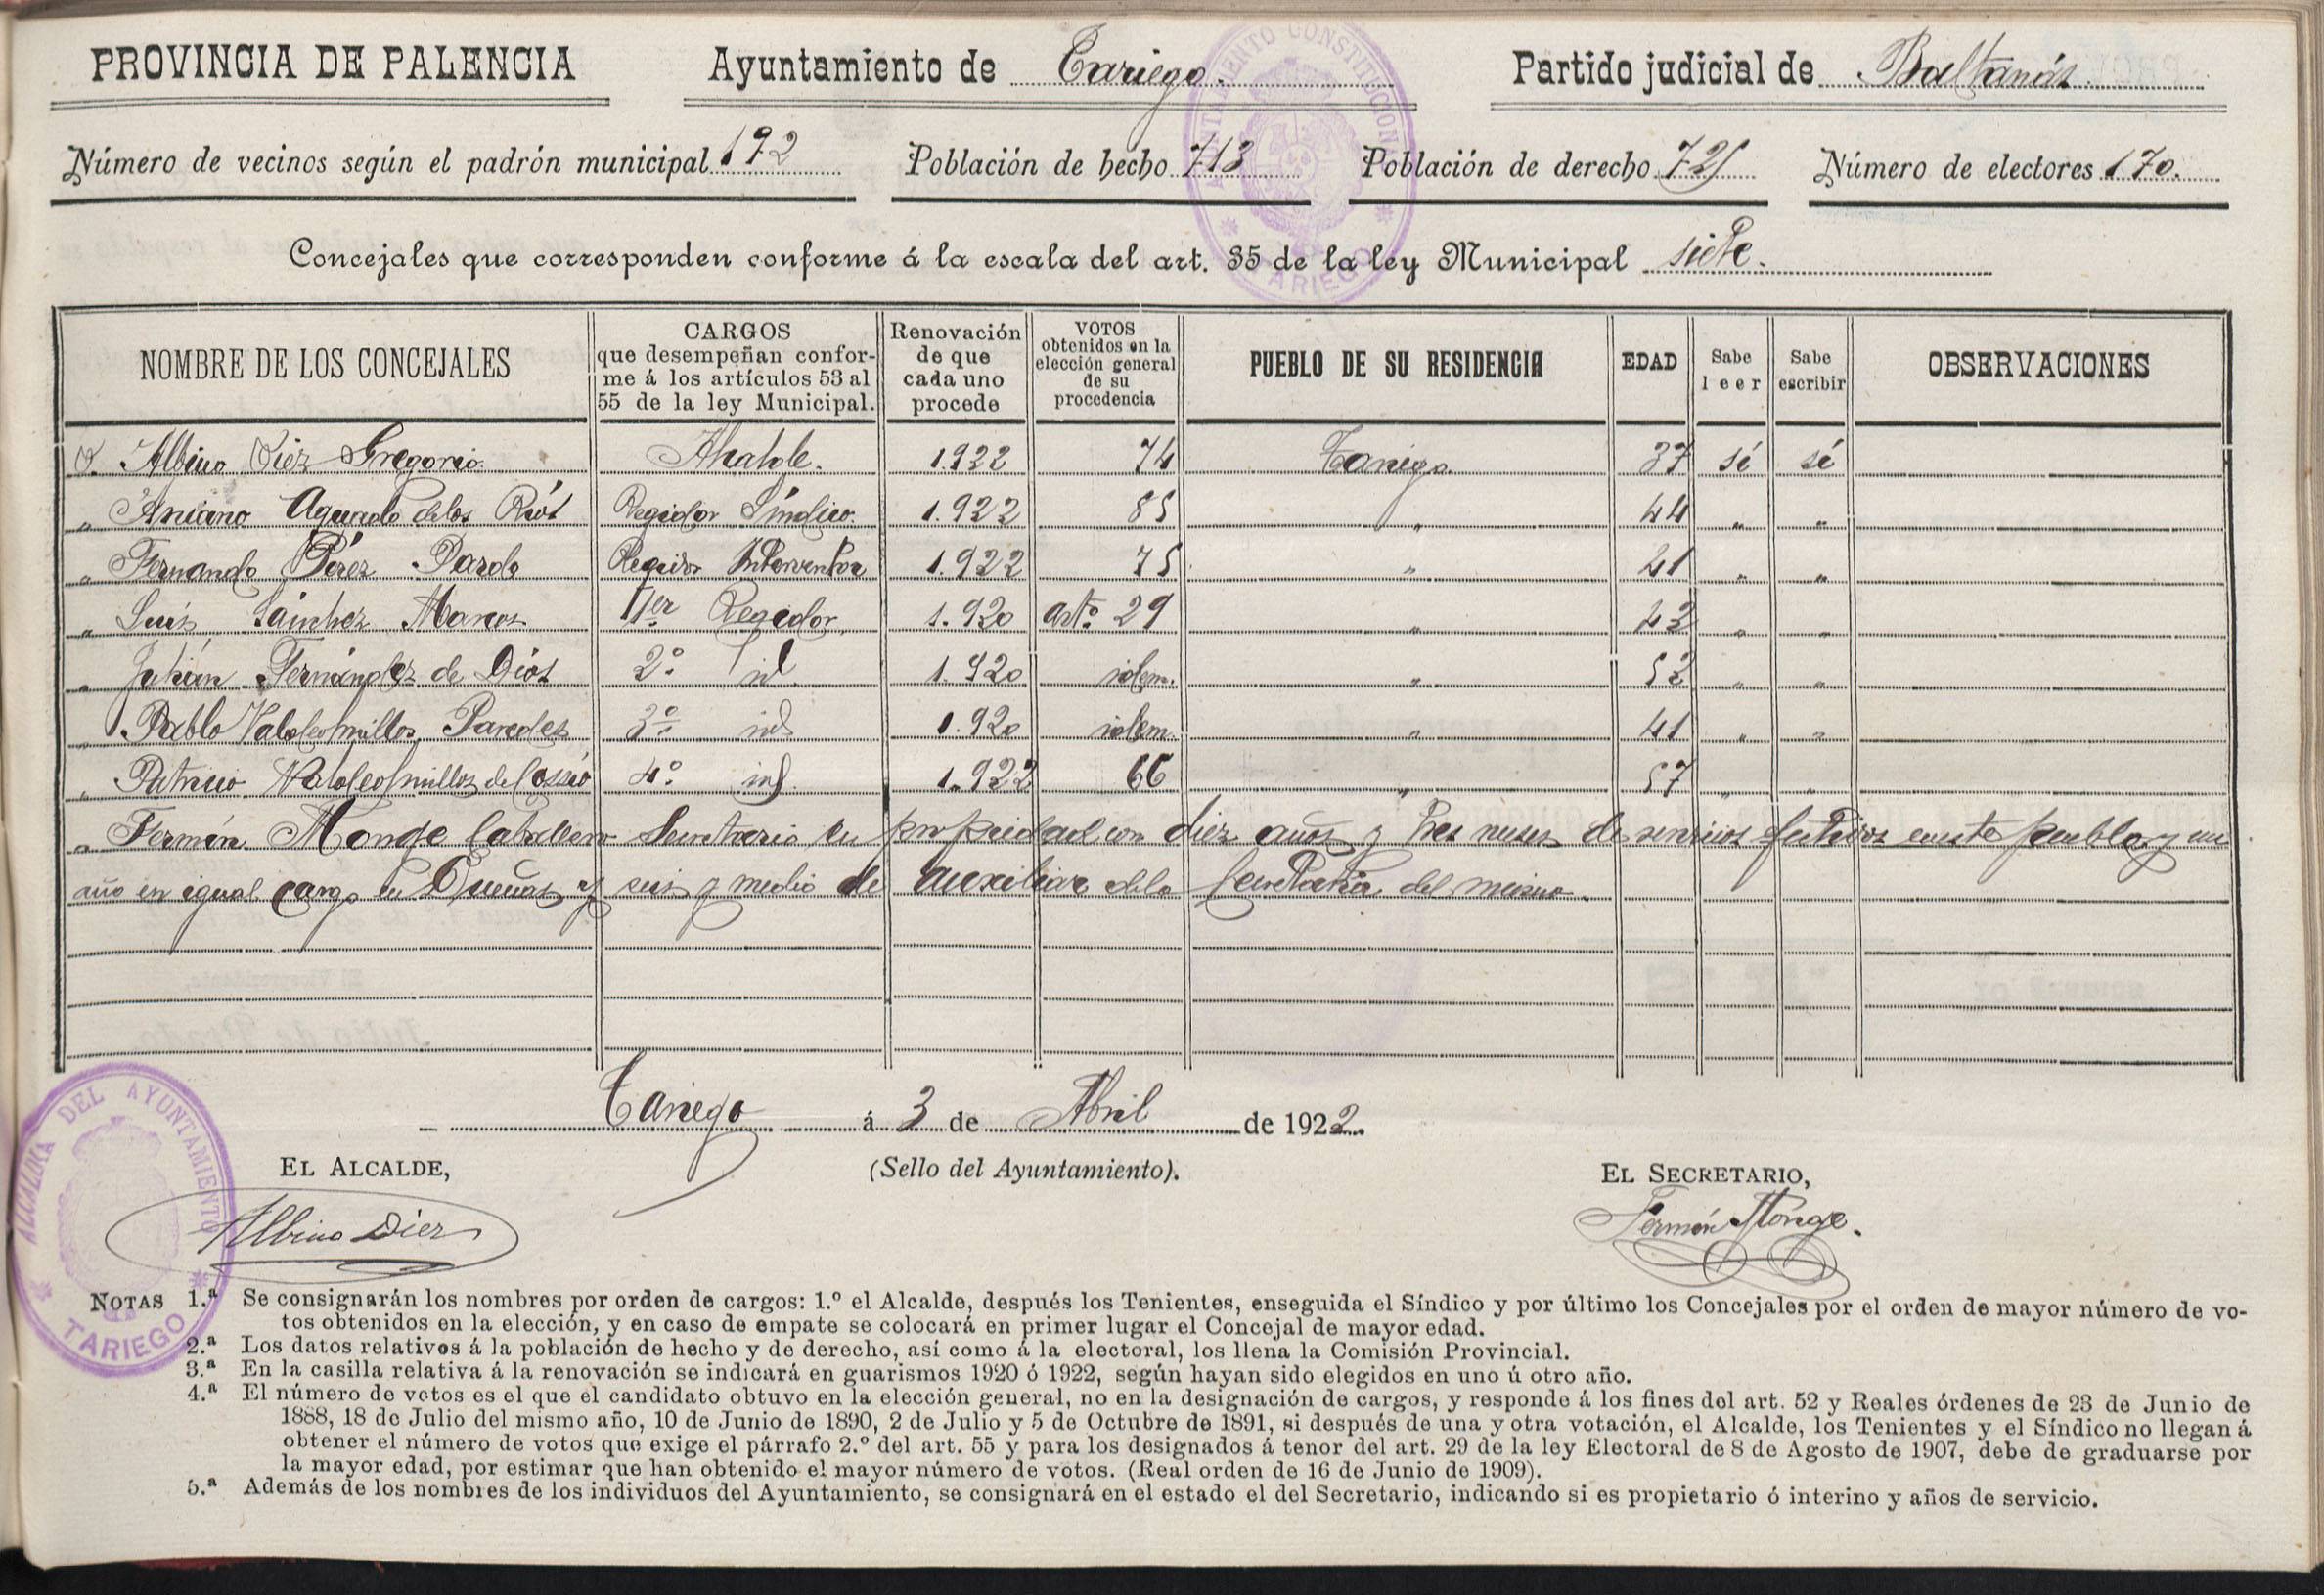 PROVINCIA DE PALENCIA Ayuntamiento de Tariego. Partido judicial de Baltanás
Número de vecinos según el padrón municipal 192 Población de hecho 713 Población de derecho 725 Número de electores 170.
Concejales que corresponden conforme á la escala del art. 35 de la ley Municipal siete.
NOMBRE DE LOS CONCEJALES CARGOS que desempeñan confor-me á los artículos 53 al 55 de la ley Municipal. Renovación de que cada uno procede VOTOS obtenidos en la elección general de su procedencia PUEBLO DE SU RESIDENCIA EDAD Sabe leer Sabe escribir OBSERVACIONES
D. Albino Diez Gregorio. Alcalde. 1922 74 Tariego 37 sí sí
" Aniano Aguado de los Ríos Regidor Síndico. 1.922 85 " 44 " "
" Fernando Pérez Pardo Regidor Interventor 1.922 75 " 41 " "
" Luis Sánchez Marcos 1er Regidor 1.920 artº 29 " 43 " "
" Julián Fernández de Diós 2º id 1.920 idem. " 52 " "
" Pablo Valdeolmillos Paredes 3º id 1.920 idem. " 41 " "
" Patricio Valdeolmillos de Cossio 4º id. 1.922 66 " 57 " "
" Fermín Monge Caballero Secretario en propiedad con diez años y tres meses de servicios efectivos en este pueblo, y un
año en igual cargo en Dueñas y seis y medio de auxiliar de la Secretaría del mismo.
Tariego á 3 de Abril de 1922.
EL ALCALDE, (Sello del Ayuntamiento). EL SECRETARIO,
Albino Diez Fermín Monge.
AYUNTAMIENTO CONSTITUCIONAL TARIEGO
ALCALDIA DEL AYUNTAMIENTO TARIEGO
NOTAS 1.ª Se consignarán los nombres por orden de cargos: 1.º el Alcalde, después los Tenientes, enseguida el Síndico y por último los Concejales por el orden de mayor número de vo-
tos obtenidos en la elección, y en caso de empate se colocará en primer lugar el Concejal de mayor edad.
2.ª Los datos relativos á la población de hecho y de derecho, así como á la electoral, los llena la Comisión Provincial.
3.ª En la casilla relativa á la renovación se indicará en guarismos 1920 ó 1922, según hayan sido elegidos en uno ú otro año.
4.ª El número de votos es el que el candidato obtuvo en la elección general, no en la designación de cargos, y responde á los fines del art. 52 y Reales órdenes de 23 de Junio de
1888, 18 de Julio del mismo año, 10 de Junio de 1890, 2 de Julio y 5 de Octubre de 1891, si después de una y otra votación, el Alcalde, los Tenientes y el Síndico no llegan á
obtener el número de votos que exige el párrafo 2.º del art. 55 y para los designados á tenor del art. 29 de la ley Electoral de 8 de Agosto de 1907, debe de graduarse por
la mayor edad, por estimar que han obtenido el mayor número de votos. (Real orden de 16 de Junio de 1909).
5.ª Además de los nombres de los individuos del Ayuntamiento, se consignará en el estado el del Secretario, indicando si es propietario ó interino y años de servicio.